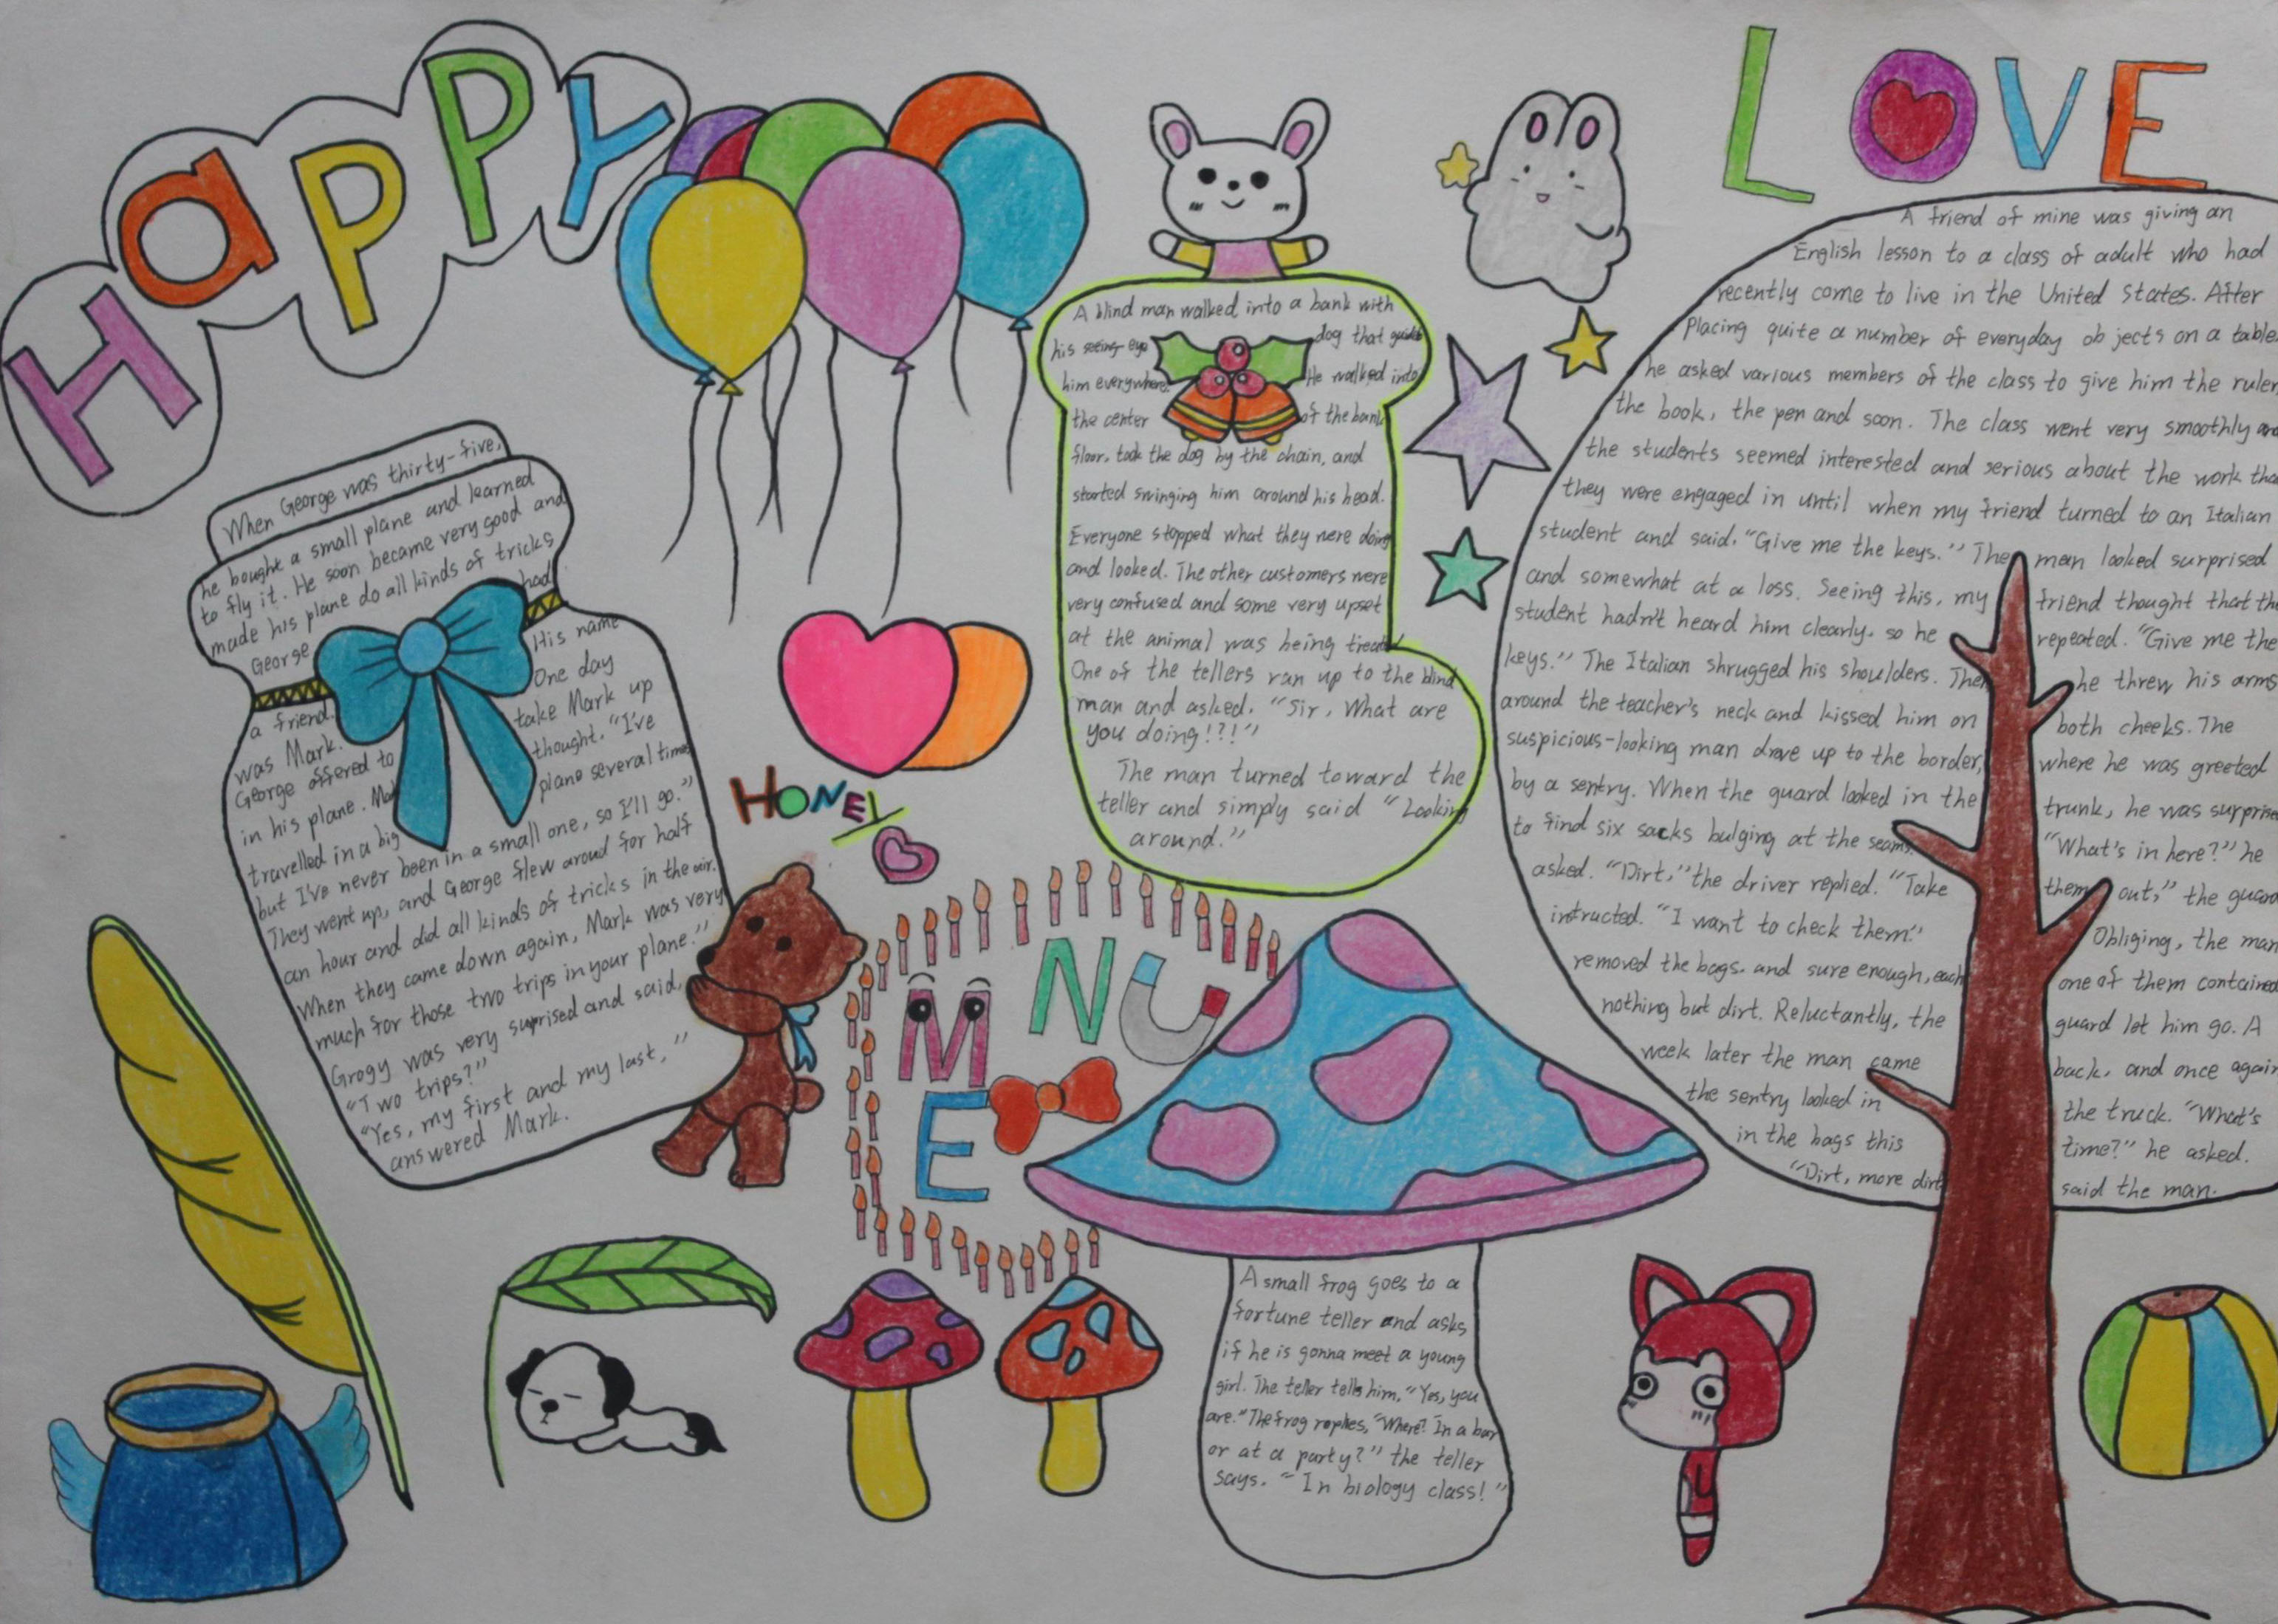 HaPPY
When George was thirty-five,
he bought a small plane and learned
to fly it. He soon became very good and
made his plane do all kinds of tricks
George had
a friend. His name
was Mark. One day
George offered to take Mark up
in his plane. Mark thought, "I've
travelled in a big plane several times
but I've never been in a small one, so I'll go."
They went up, and George flew aroud for half
an hour and did all kinds of tricks in the air.
When they came down again, Mark was very
much for those two trips in your plane."
Grogy was very suprised and said,
"Two trips?"
"Yes, my first and my last,"
answered Mark.
HONEY
MENU
A blind man walked into a bank with
his seeing-eye dog that guides
him everywhere. He walked into
the center of the bank
floor, took the dog by the chain, and
started swinging him around his head.
Everyone stopped what they were doing
and looked. The other customers were
very confused and some very upset
at the animal was being treated
One of the tellers ran up to the blind
man and asked. "Sir, What are
you doing!?!"
The man turned toward the
teller and simply said "Looking
around."
A small frog goes to a
fortune teller and asks
if he is gonna meet a young
girl. The teller tells him, "Yes, you
are." The frog replies, "Where? In a bar
or at a party?" the teller
says. "In biology class!"
LOVE
A friend of mine was giving an
English lesson to a class of adult who had
recently come to live in the United States. After
Placing quite a number of everyday ob jects on a table
he asked various members of the class to give him the ruler,
the book, the pen and soon. The class went very smoothly and
the students seemed interested and serious about the work that
they were engaged in until when my friend turned to an Italian
student and said. "Give me the keys." The man looked surprised
and somewhat at a loss. Seeing this, my friend thought that the
student hadn't heard him clearly, so he repeated. "Give me the
keys." The Italian shrugged his shoulders. Then he threw his arms
around the teacher's neck and kissed him on both cheeks. The
suspicious-looking man drove up to the border, where he was greeted
by a sentry. When the guard looked in the trunk, he was surprised
to find six sacks bulging at the seams. "What's in here?" he
asked. "Dirt," the driver replied. "Take them out," the guard
intructed. "I want to check them." Obliging, the man
removed the bags, and sure enough, each one of them contained
nothing but dirt. Reluctantly, the guard let him go. A
week later the man came back, and once again
the sentry looked in the truck. "What's
in the bags this time?" he asked.
"Dirt, more dirt said the man.